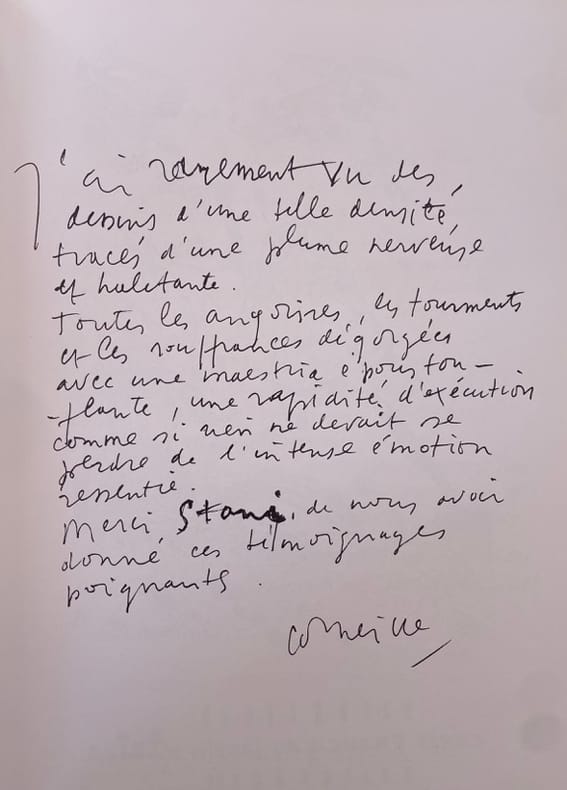 J'ai rarement vu des
dessins d'une telle densité,
tracés d'une plume nerveuse
et haletante.
Toutes les angoisses, les tourments
et les souffrances dégorgées
avec une maestria époustou-
-flante, une rapidité d'exécution
comme si rien ne devait se
perdre de l'intense émotion
ressentie.
Merci, Stani, de nous avoir
donné ces témoignages
poignants.
Corneille